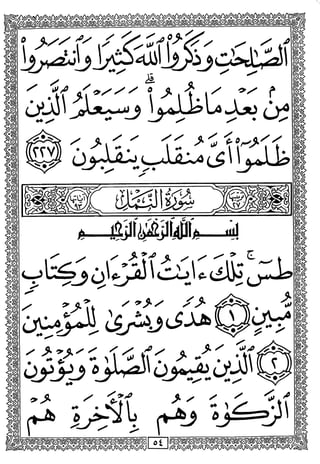 ٱلصَّـٰلِحَـٰتِ وَذَكَرُوا۟ ٱللَّهَ كَثِيرًا وَٱنتَصَرُوا۟
مِنۢ بَعْدِ مَا ظُلِمُوا۟ ۗ وَسَيَعْلَمُ ٱلَّذِينَ
ظَلَمُوٓا۟ أَىَّ مُنقَلَبٍ يَنقَلِبُونَ ٢٢٧
سُورَةُ النَّمْل
بِسْمِ ٱللَّهِ ٱلرَّحْمَـٰنِ ٱلرَّحِيمِ
طسٓ ۚ تِلْكَ ءَايَـٰتُ ٱلْقُرْءَانِ وَكِتَابٍ
مُّبِينٍ ١ هُدًى وَبُشْرَىٰ لِلْمُؤْمِنِينَ
٢ ٱلَّذِينَ يُقِيمُونَ ٱلصَّلَوٰةَ وَيُؤْتُونَ
ٱلزَّكَوٰةَ وَهُم بِٱلْـَٔاخِرَةِ هُمْ
٥٤